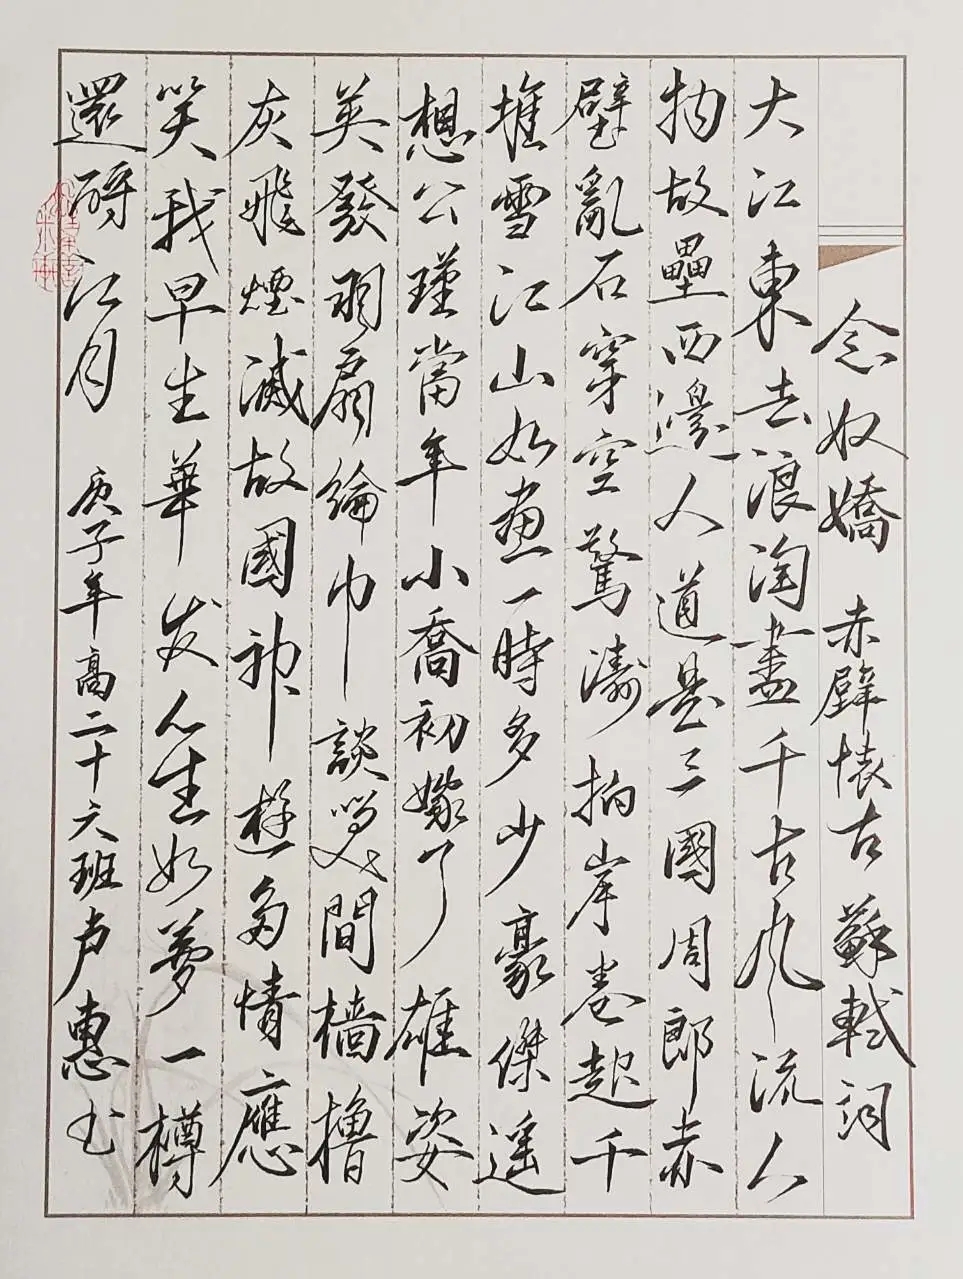 念奴嬌 赤壁懐古 蘇軾詞
大江東去浪淘盡千古風流人
物故壘西邊人道是三國周郎赤
壁亂石穿空驚濤拍岸卷起千
堆雪江山如畫一時多少豪傑遥
想公瑾當年小喬初嫁了雄姿
英發羽扇綸巾談笑間檣櫓
灰飛煙滅故國神遊多情應
笑我早生華发人生如夢一樽
還酹江月 庚子年高二十六班卢惠书